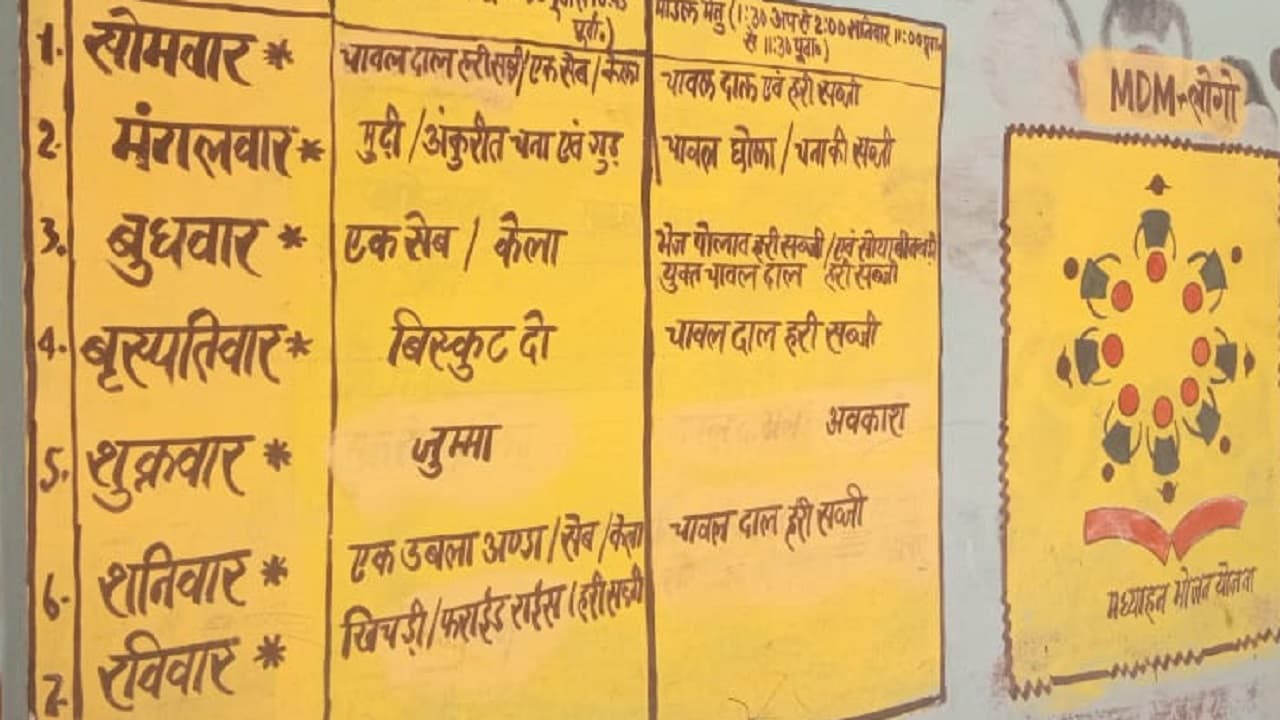 पूर्वा०)
मेनु (1:30 अप से 2:00 शनिवार 11:00 पूर्वा०
से 11:30 पूर्वा०)
1. सोमवार * चावल दाल हरी सब्जी/एक सेब/केला चावल दाल एवं हरी सब्जी
2. मंगलवार * मुढ़ी/अंकुरीत चना एवं गुड़ चावल छोला/चना की सब्जी
3. बुधवार * एक सेब / केला भेज पोलाव हरी सब्जी/एवं सोयाबीन बड़ी
युक्त चावल दाल हरी सब्जी
4. बृस्पतिवार * बिस्कुट दो चावल दाल हरी सब्जी
5. शुक्रवार * जुम्मा अवकाश
6. शनिवार * एक उबला अण्डा/सेब/केला चावल दाल हरी सब्जी
7. रविवार * खिचड़ी/फराईड राईस/हरी सब्जी
MDM-लोगो
मध्याहन भोजन योजना